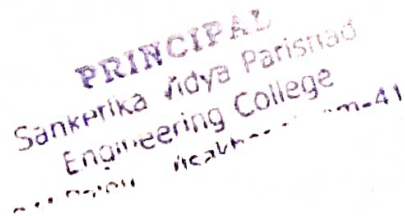 PRINCIPAL
Sanketika Vidya Parishad
Engineering College
-41